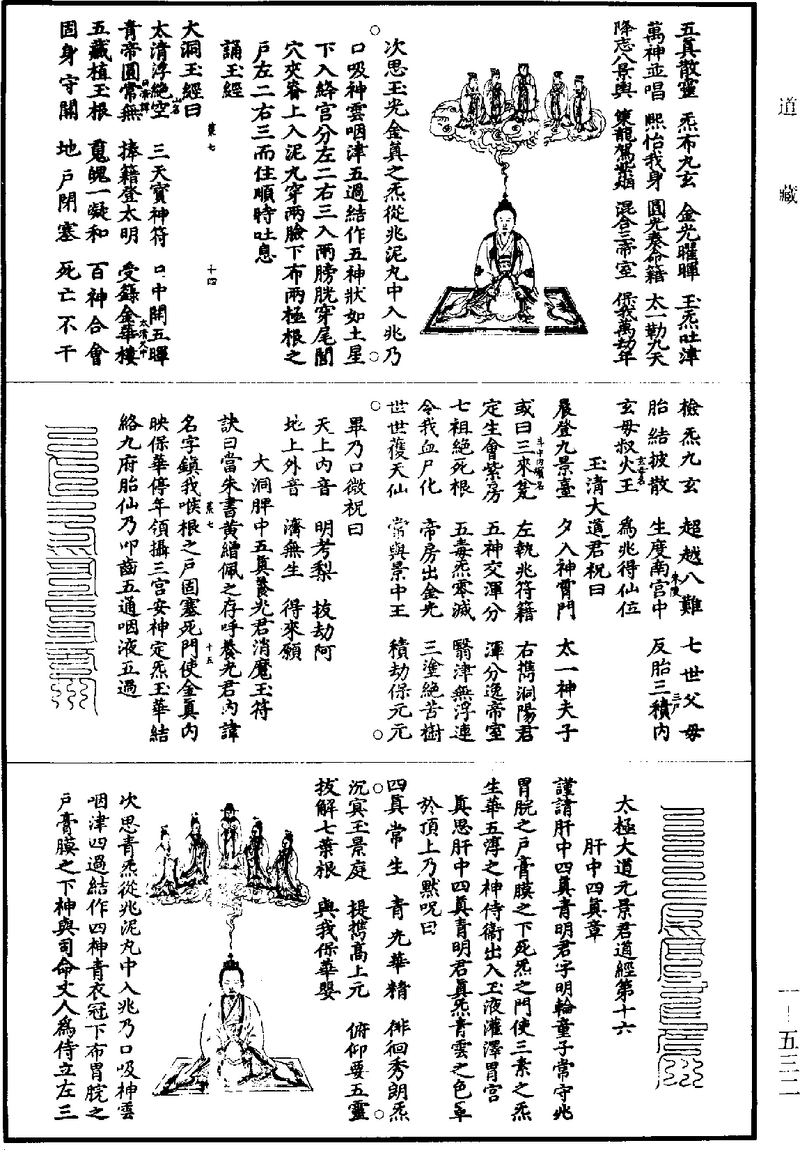 道藏
五眞散靈　炁布九玄　金光曜暉　玉炁吐津
萬神並唱　熙怡我身　圓光奏命籍　太一勒九天
降忘八景輿　策龍駕紫煙　混合三帝室　保我萬劫年
次思玉光金眞之炁從兆泥丸中入兆乃
口吸神雲咽津五過結作五神狀如土星
下入絳宮分左二右三入兩膀胱穿尾閭
穴夾脊上入泥丸穿兩臉下布兩極根之
戶左二右三而住順時吐息
誦玉經
大洞玉經曰
太清浮絶空　三天寶神符　口中開五暉
青帝圓常無　捧籍登太明　受錄金華樓
五藏植玉根　䰟魄一凝和　百神合會
固身守關　地戶閉塞　死亡不干
檢炁九玄　超越八難　七世父母
胎結披散　生度南宮中　反胎三積內
玄母叔火王　爲兆得仙位
玉清大道君祝曰
晨登九景臺　夕入神霄門　太一神夫子
或曰三來冠　左執兆符籍　右擕洞陽君
定生會紫房　五神交渾分　渾分逸帝室
七祖絶死根　五毒炁零滅　翳津無浮連
令我血尸化　帝房出金光　三塗絶苦樹
世世獲天仙　常與景中王　積劫保元元
畢乃口微祝曰
天上內音　明考梨　拔劫阿
地上外音　濟無生　得來願
大洞脾中五眞養光君消魔玉符
訣曰當朱書黃繒佩之存呼養光君內諱
名字鎮我喉根之戶固塞死門使金眞內
映保華停年領攝三宮安神定炁玉華結
絡九府胎仙乃叩齒五通咽液五過
太極大道元景君道經第十六
肝中四眞章
謹請肝中四眞青明君字明輪童子常守兆
胃脘之戶膏膜之下死炁之門使三素之炁
生華五溥之神侍衛出入玉液灌澤胃宮
眞思肝中四眞青明君眞炁青雲之色罩
於頂上乃黙呪曰
四眞常生　青光華精　徘徊秀朗炁
沉寂玉景庭　提擕高上元　俯仰要五靈
拔解七葉根　與我保華嬰
次思青炁從兆泥丸中入兆乃口吸神雲
咽津四過結作四神青衣冠下布胃脘之
戶膏膜之下神與司命丈人爲侍立左三
一—五三二